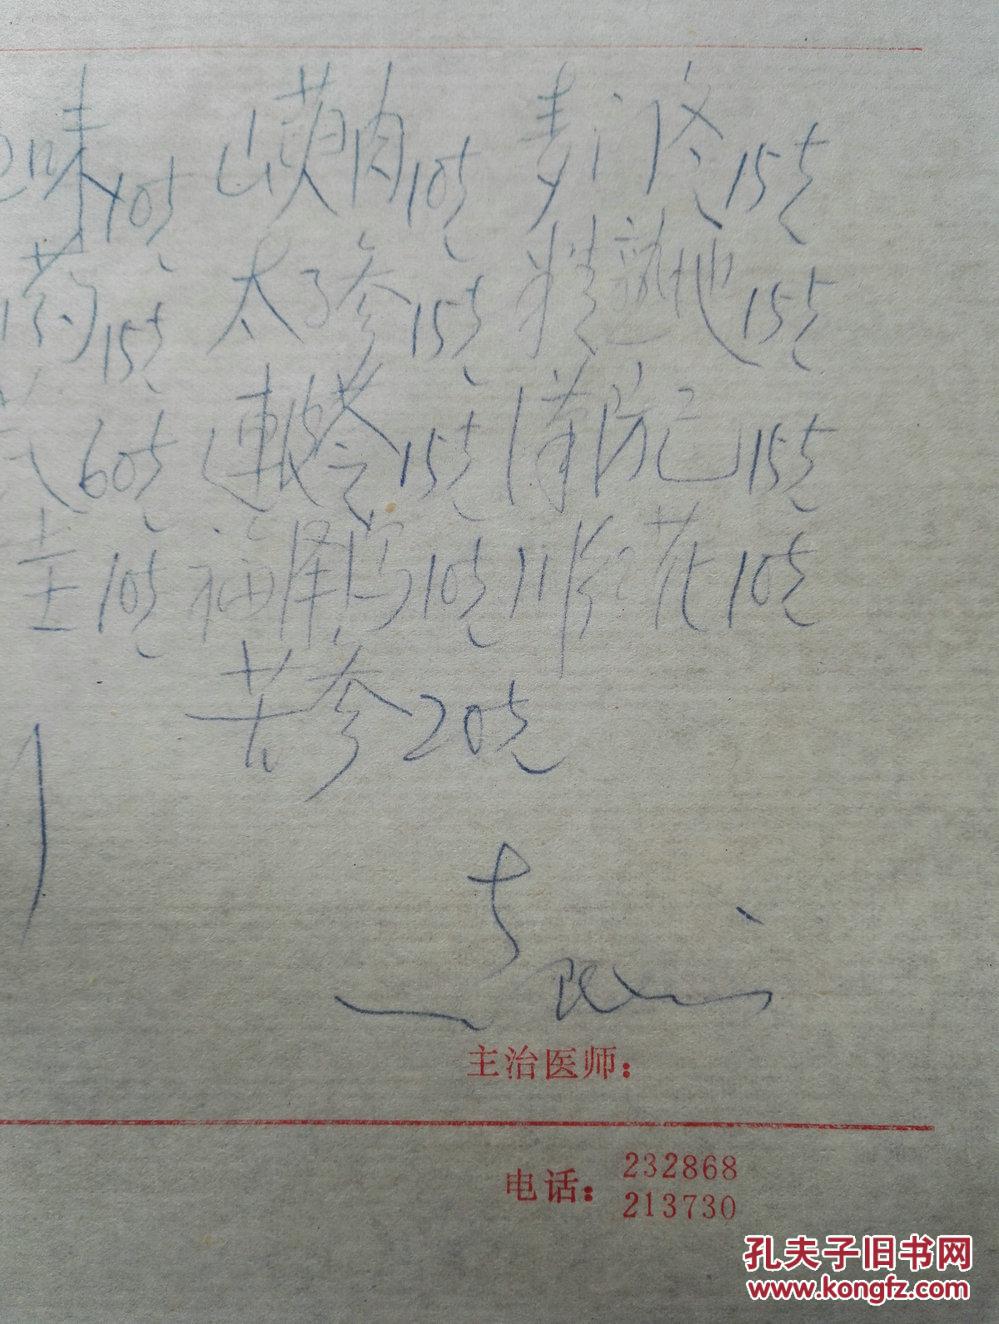 味10克 山萸肉10克 麦门冬15克
药15克 太子参15克 熟地15克
60克 連皮苓15克 漢防己15克
10克 福泽泻10克 川红花10克
苦参20克
主治医师：
电话： 232868
213730
孔夫子旧书网
www.kongfz.com